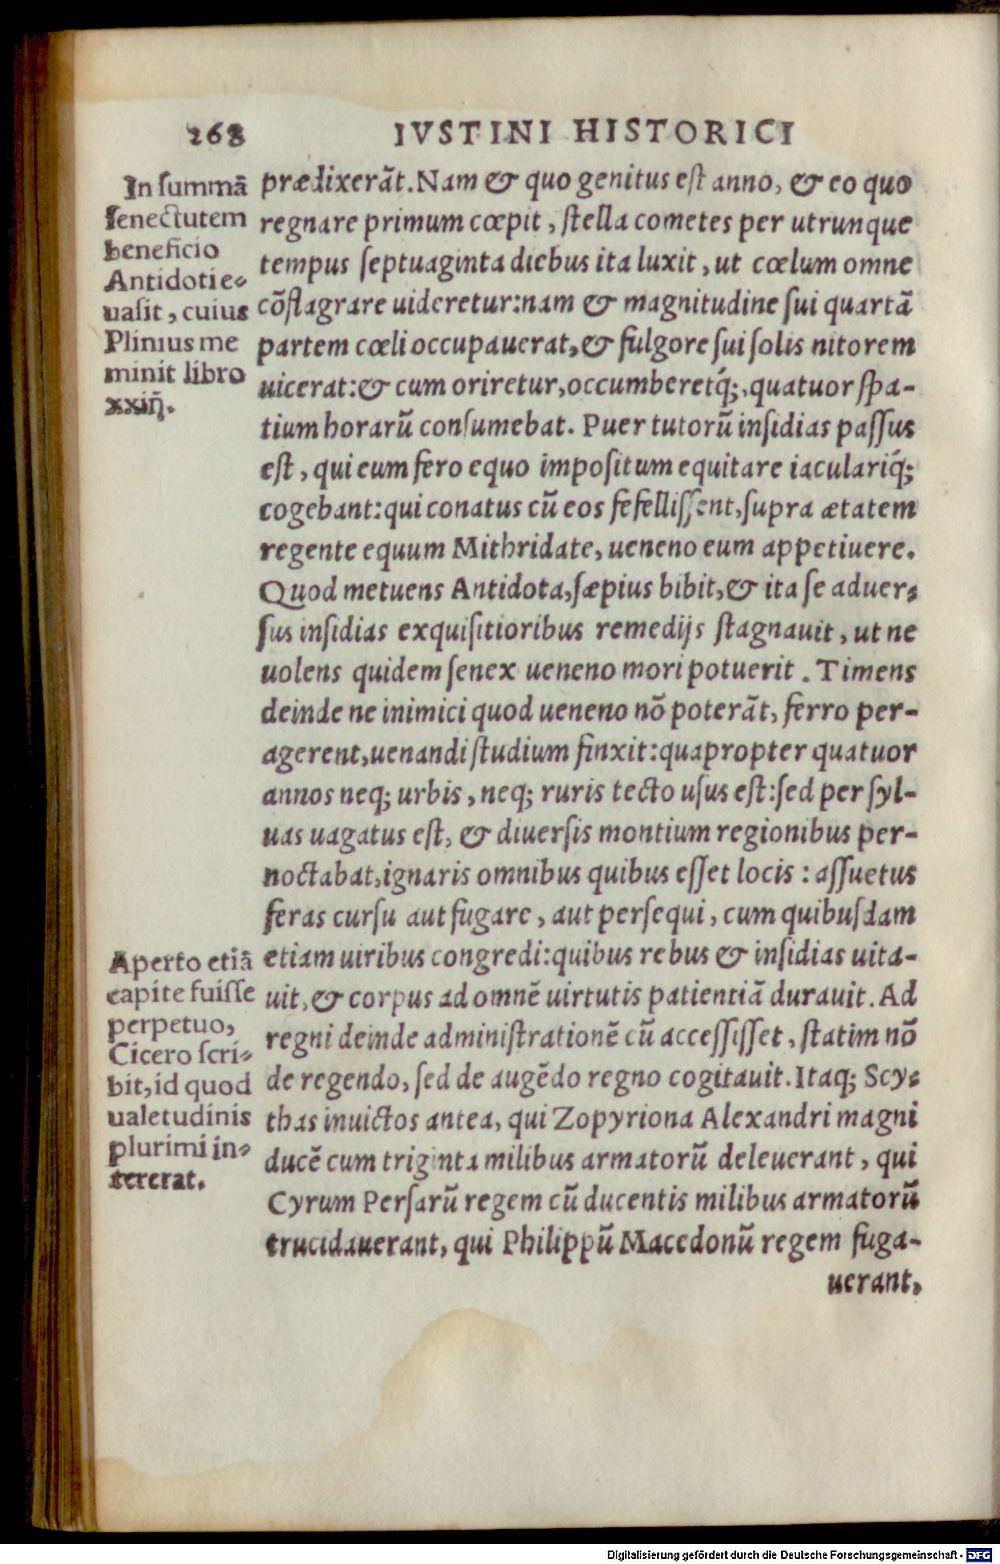 268
IVSTINI HISTORICI
In summā
senectutem
beneficio
Antidoti e-
uasit, cuius
Plinius me
minit libro
xxiij.
prædixerāt. Nam & quo genitus est anno, & eo quo
regnare primum cœpit, stella cometes per utrunque
tempus septuaginta diebus ita luxit, ut cœlum omne
cōflagrare uideretur: nam & magnitudine sui quartā
partem cœli occupauerat, & fulgore sui solis nitorem
uicerat: & cum oriretur, occumberetq́;, quatuor spa-
tium horarū consumebat. Puer tutorū insidias passus
est, qui eum fero equo impositum equitare iaculariq́;
cogebant: qui conatus cū eos fefellissent, supra ætatem
regente equum Mithridate, ueneno eum appetiuere.
Quod metuens Antidota, sæpius bibit, & ita se aduer-
sus insidias exquisitioribus remedijs stagnauit, ut ne
uolens quidem senex ueneno mori potuerit. Timens
deinde ne inimici quod ueneno nō poterāt, ferro per-
agerent, uenandi studium finxit: quapropter quatuor
annos neq; urbis, neq; ruris tecto usus est: sed per syl-
uas uagatus est, & diuersis montium regionibus per-
noctabat, ignaris omnibus quibus esset locis: assuetus
feras cursu aut fugare, aut persequi, cum quibusdam
etiam uiribus congredi: quibus rebus & insidias uita-
uit, & corpus ad omnē uirtutis patientiā durauit. Ad
regni deinde administrationē cū accessisset, statim nō
de regendo, sed de augēdo regno cogitauit. Itaq; Scy-
thas inuictos antea, qui Zopyriona Alexandri magni
ducē cum triginta milibus armatorū deleuerant, qui
Cyrum Persarū regem cū ducentis milibus armatorū
trucidauerant, qui Philippū Macedonū regem fuga-
uerant,
Aperto etiā
capite fuisse
perpetuo,
Cicero scri-
bit, id quod
ualetudinis
plurimi in-
tererat.
Digitalisierung gefördert durch die Deutsche Forschungsgemeinschaft - DFG